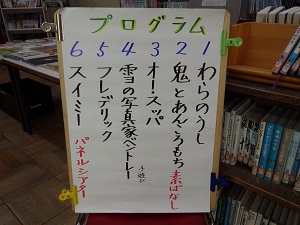 プログラム
1 わらのうし
2 鬼とあんころもち 素ばなし
3 オオスッパ
4 雪の写真家ベントレー
手遊び
5 フレデリック
6 スイミー パネルシアター